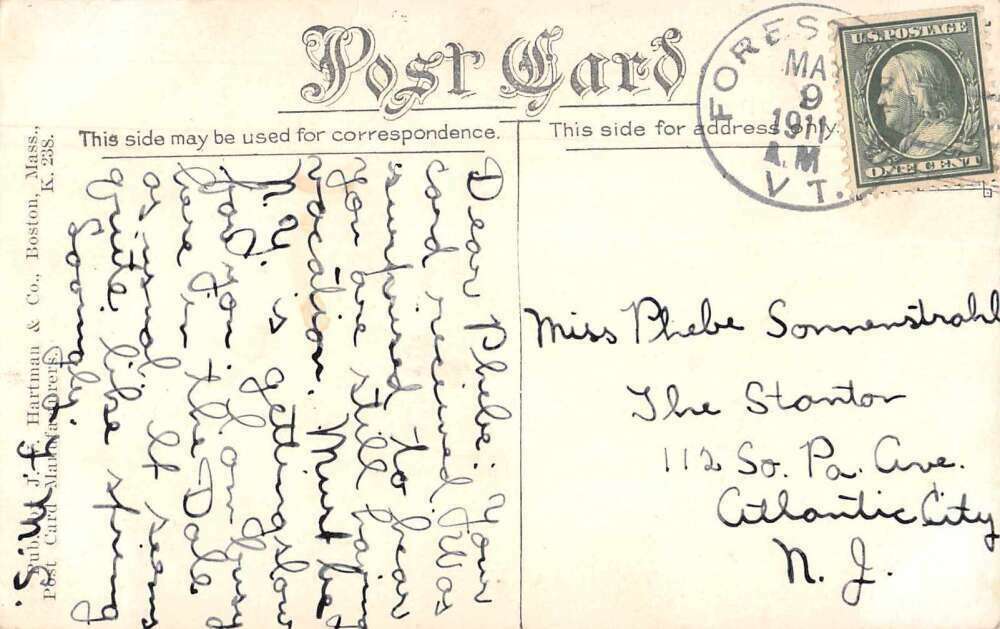 Post Card
This side may be used for correspondence.
This side for address only.
FOREST
MA
9
1911
A.M
VT.
U.S. POSTAGE
ONE CENT
Dear Phebe: Your
card received. Was
surprised to hear
you are still having
vacation. Must be
N.Y. is getting slow
for you. I am busy
here in the Dale
as usual. It seems
quite like spring
Miss Phebe Sonnenstrahl
The Stanton
112 So. Pa. Ave.
Atlantic City
N. J.
Publ. J. F. Hartman & Co., Boston, Mass.,
Post Card Manufacturers. K. 238.